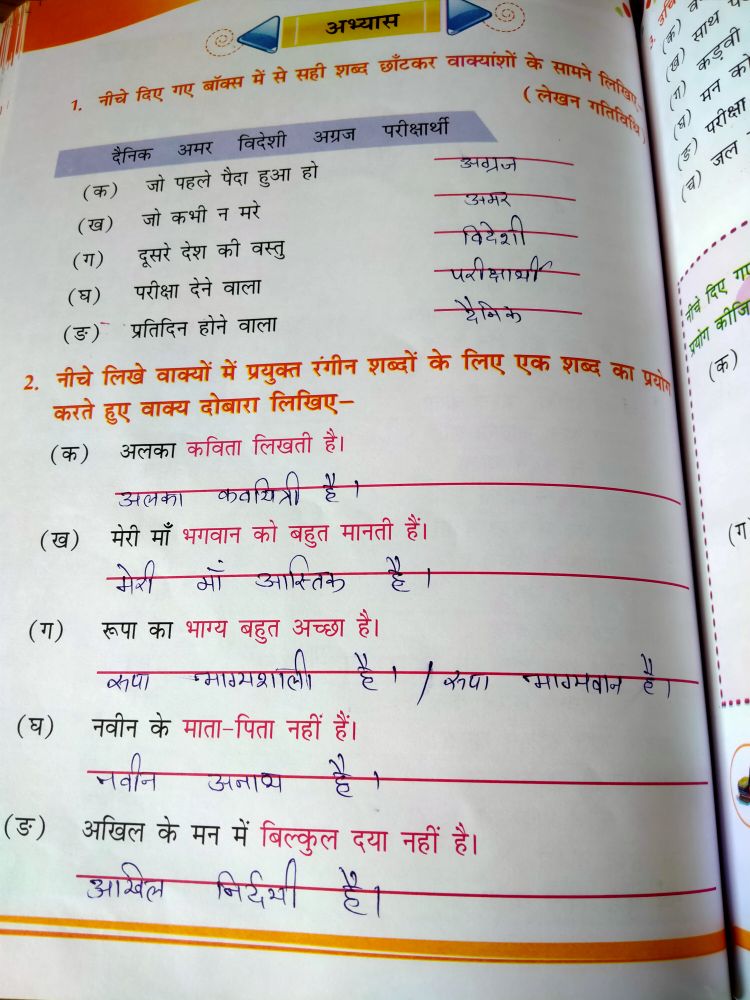 अभ्यास
1. नीचे दिए गए बॉक्स में से सही शब्द छाँटकर वाक्यांशों के सामने लिखिए–
(लेखन गतिविधि)
दैनिक अमर विदेशी अग्रज परीक्षार्थी
(क) जो पहले पैदा हुआ हो अग्रज
(ख) जो कभी न मरे अमर
(ग) दूसरे देश की वस्तु विदेशी
(घ) परीक्षा देने वाला परीक्षार्थी
(ङ) प्रतिदिन होने वाला दैनिक
2. नीचे लिखे वाक्यों में प्रयुक्त रंगीन शब्दों के लिए एक शब्द का प्रयोग
करते हुए वाक्य दोबारा लिखिए–
(क) अलका कविता लिखती है।
अलका कवयित्री है।
(ख) मेरी माँ भगवान को बहुत मानती हैं।
मेरी माँ आस्तिक है।
(ग) रूपा का भाग्य बहुत अच्छा है।
रूपा भाग्यशाली है। / रूपा भाग्यवान है।
(घ) नवीन के माता-पिता नहीं हैं।
नवीन अनाथ है।
(ङ) अखिल के मन में बिल्कुल दया नहीं है।
अखिल निर्दयी है।
3.
(क)
(ख) साथ
(ग) कड़वी
(घ) मन को
(ङ) परीक्षा
(च) जल
नीचे दिए गए
प्रयोग कीजि
(क)
(ग